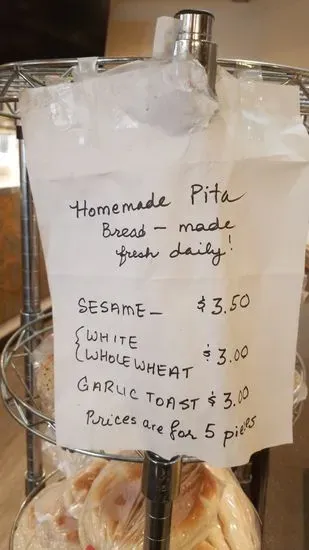 Homemade Pita
Bread - made
fresh daily!
SESAME - $3.50
{ WHITE
WHOLE WHEAT $3.00
GARLIC TOAST $3.00
Prices are for 5 pieces